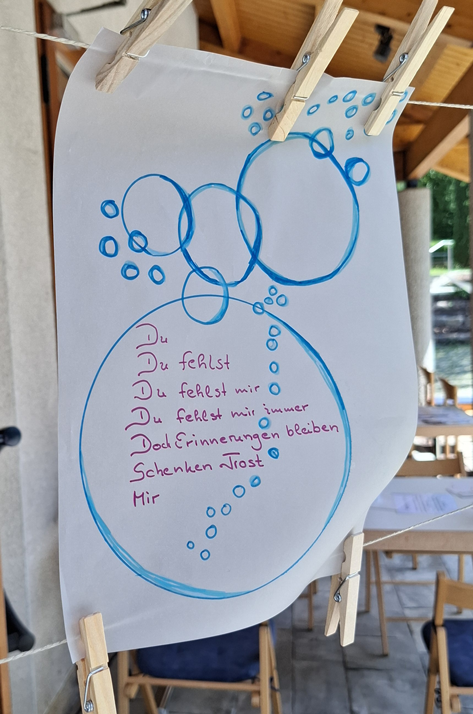 Du
Du fehlst
Du fehlst mir
Du fehlst mir immer
Doch Erinnerungen bleiben
Schenken Trost
Mir